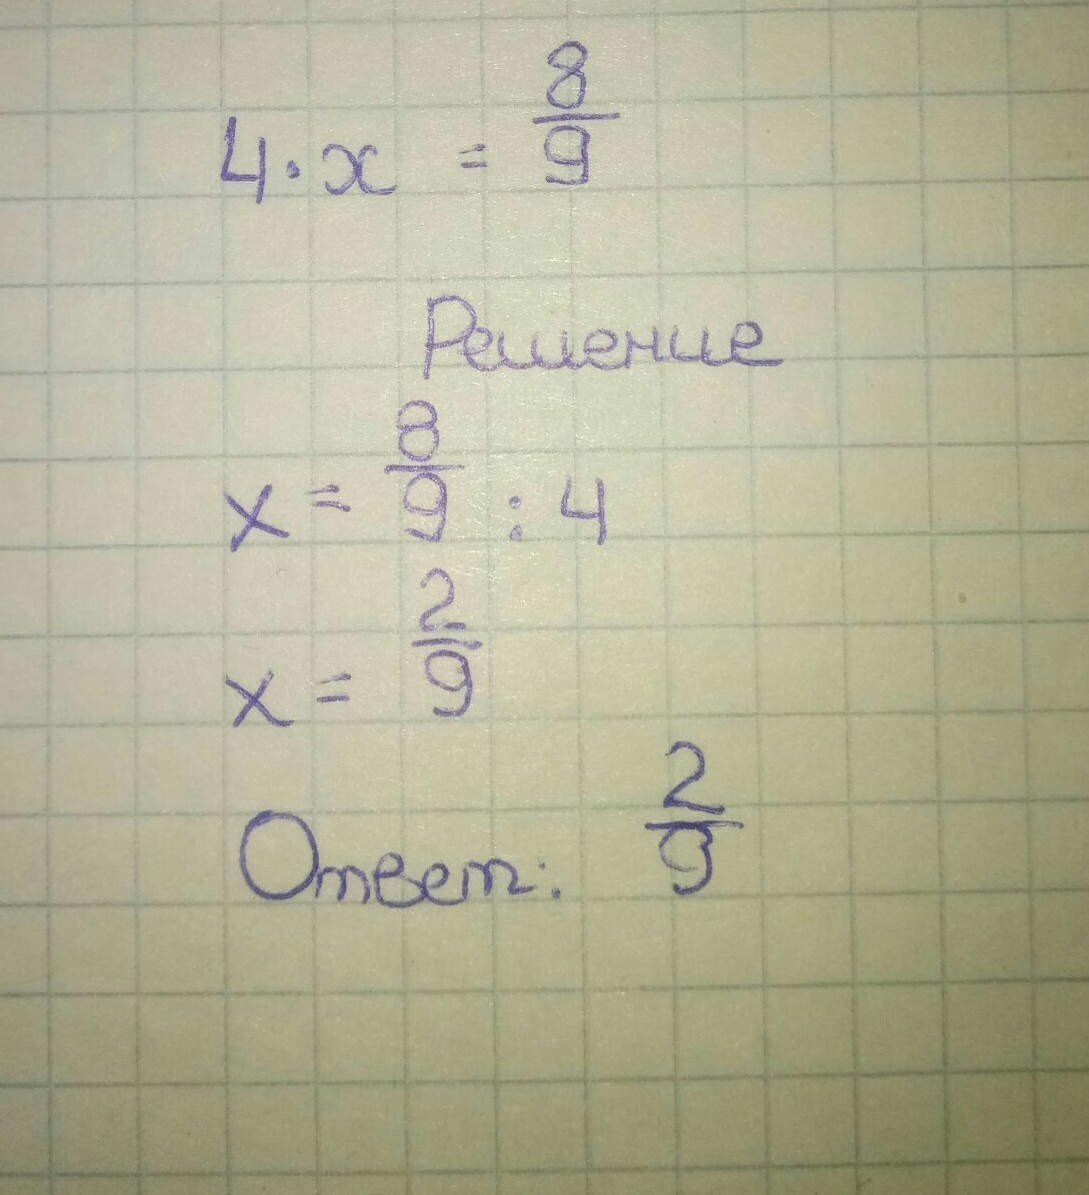 4·x = 8/9
Решение
x = 8/9 : 4
x = 2/9
Ответ: 2/9